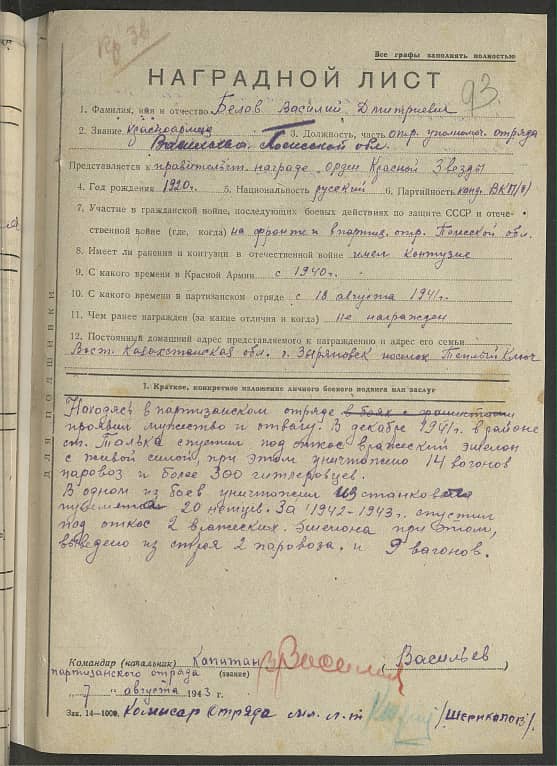 Все графы заполнять полностью
НАГРАДНОЙ ЛИСТ
93.
1. Фамилия, имя и отчество Белов Василий Дмитриевич
2. Звание красноармеец 3. Должность, часть отр. отряда
Полесской обл.
Представляется к правительст. награде орден Красной Звезды
4. Год рождения 1920г. 5. Национальность русский 6. Партийность канд. ВКП(б)
7. Участие в гражданской войне, последующих боевых действиях по защите СССР и отече-
ственной войне (где, когда) на фронте и в партиз. отр. Полесской обл.
8. Имеет ли ранения и контузии в отечественной войне имел контузию
9. С какого времени в Красной Армии с 1940г.
10. С какого времени в партизанском отряде с 18 августа 1941г.
11. Чем ранее награжден (за какие отличия и когда) не награжден
12. Постоянный домашний адрес представляемого к награждению и адрес его семьи
Вост. Казахстанская обл. г. Зыряновск поселок Теплый Ключ
ДЛЯ ПОДШИВКИ
1. Краткое, конкретное изложение личного боевого подвига или заслуг
Находясь в партизанском отряде в боях с фашистами
проявил мужество и отвагу. В декабре 1941г. в районе
ст. Талька спустил под откос вражеский эшелон
с живой силой, при этом уничтожено 14 вогонов
паровоз и более 300 гитлеровцев.
В одном из боев уничтожил из станкового
пулемета 20 немцев. За 1942-1943г. спустил
под откос 2 вражеских эшелона при этом,
выведено из строя 2 паровоза. и 9 вагонов.
Командир (начальник) Капитан (Васильев)
партизанского отряда (звание)
"7" августа 1943 г.
Зак. 14—1000. Комисар отряда мл. л-т